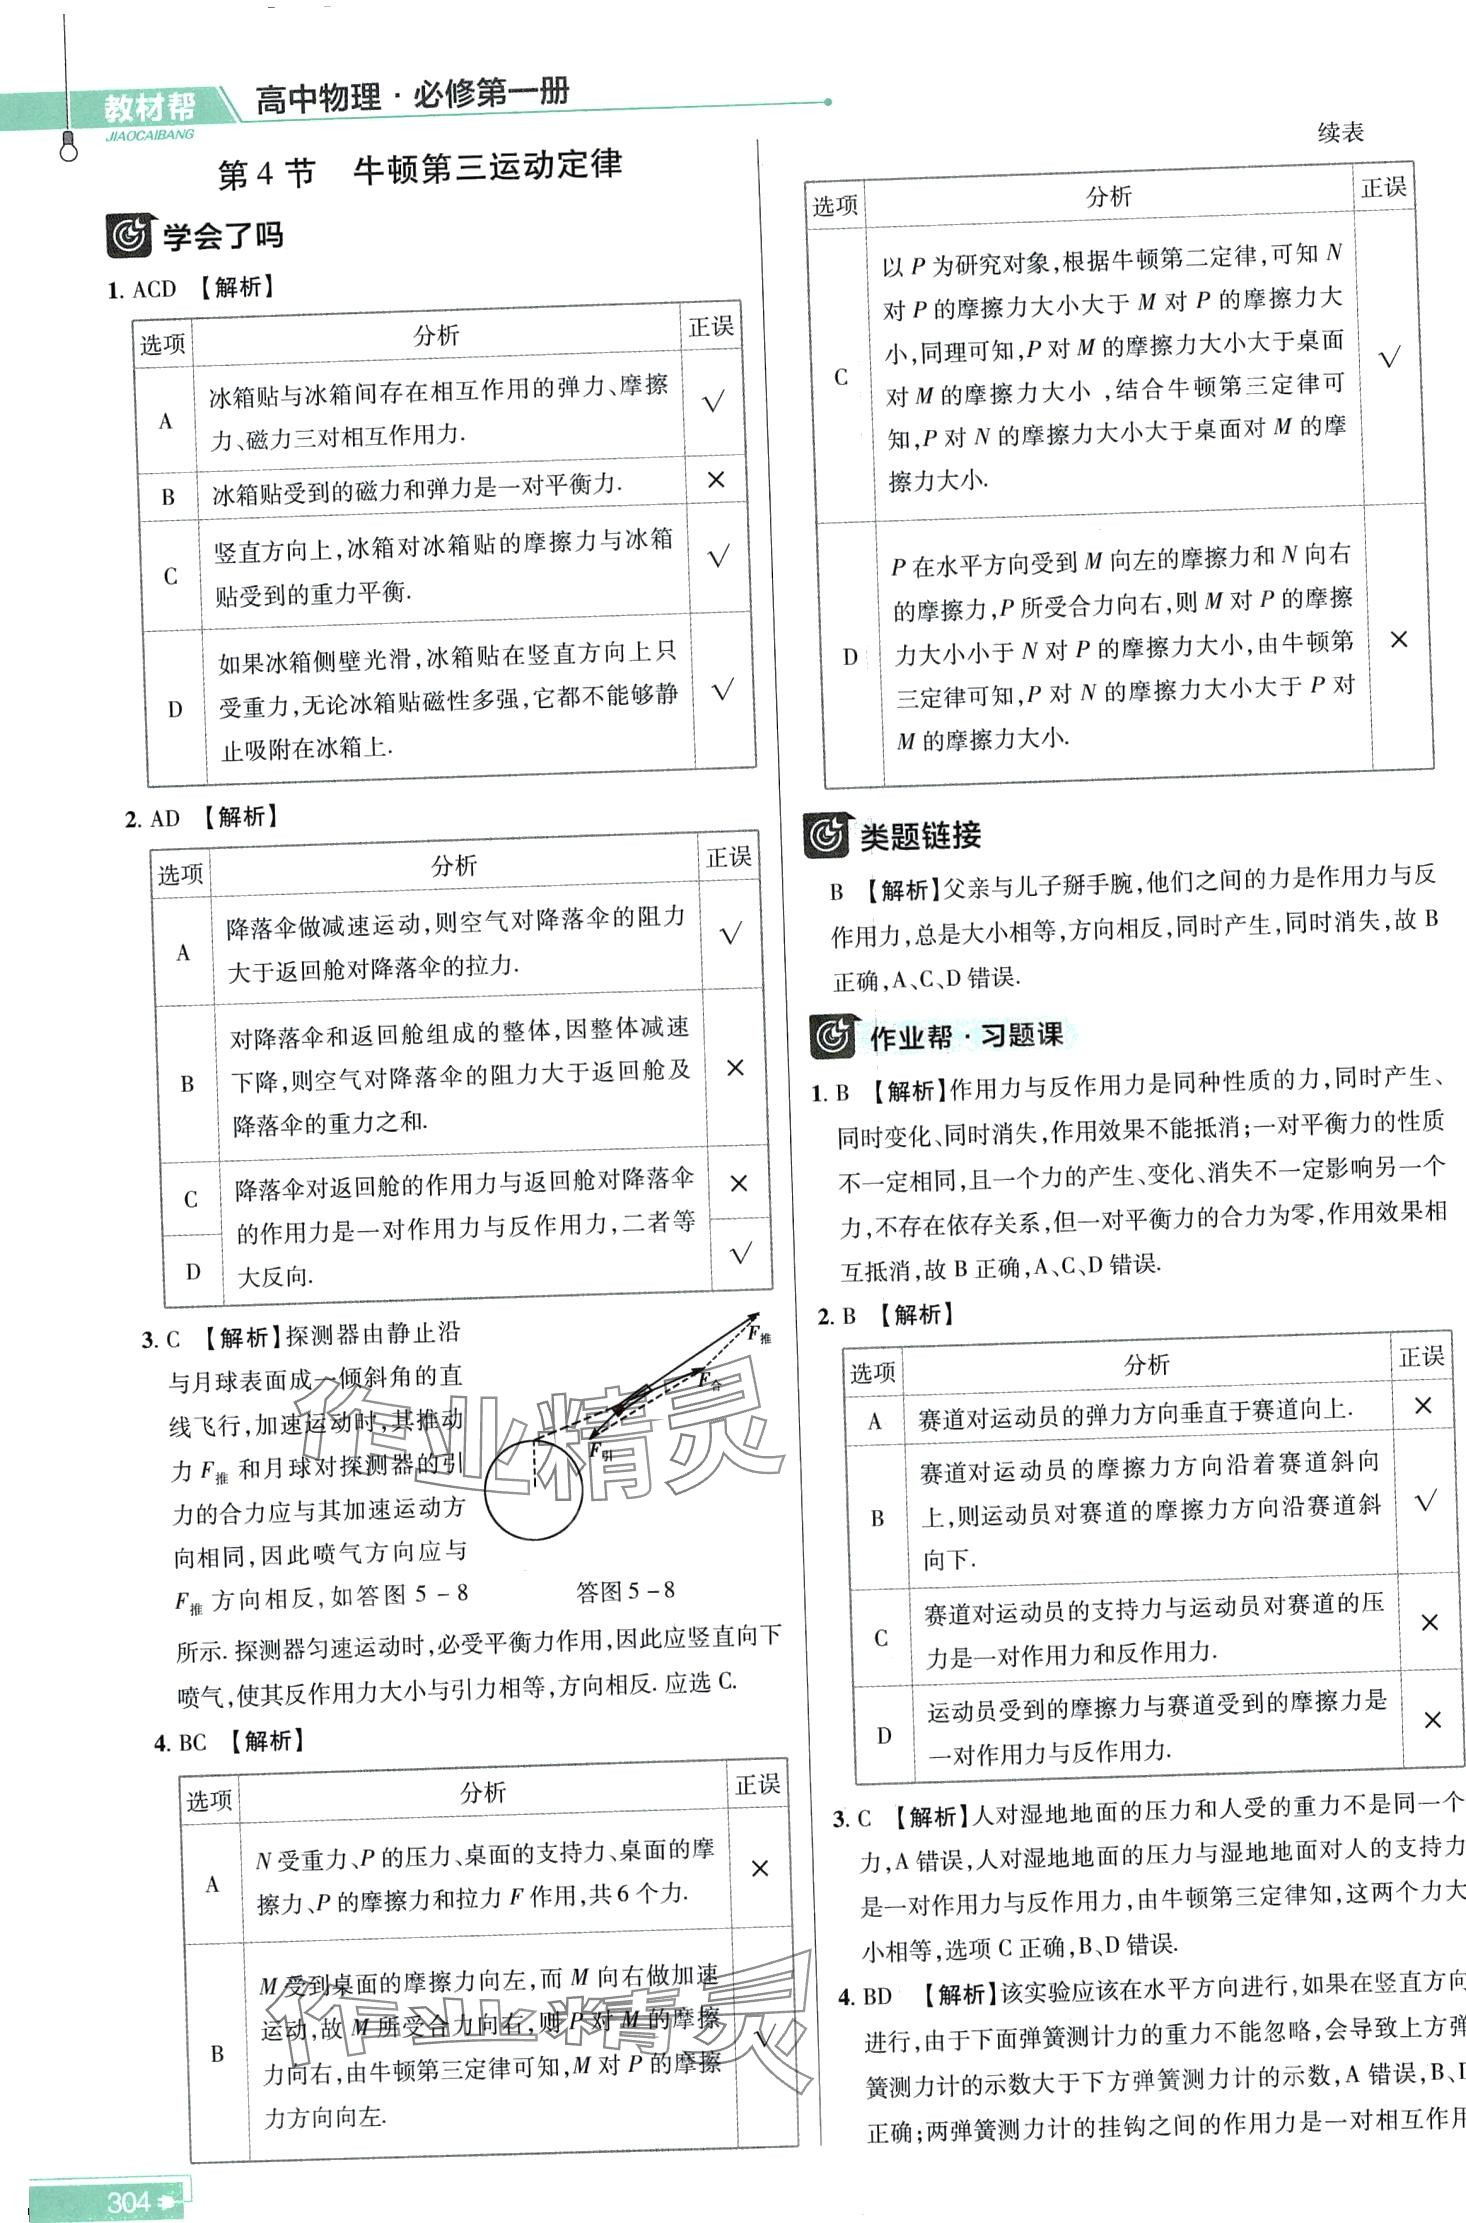 教材帮
JIAOCAIBANG
高中物理·必修第一册
第4节 牛顿第三运动定律
学会了吗
1. ACD 【解析】
选项 分析 正误
A 冰箱贴与冰箱间存在相互作用的弹力、摩擦
力、磁力三对相互作用力. √
B 冰箱贴受到的磁力和弹力是一对平衡力. ×
C 竖直方向上,冰箱对冰箱贴的摩擦力与冰箱
贴受到的重力平衡. √
D 如果冰箱侧壁光滑,冰箱贴在竖直方向上只
受重力,无论冰箱贴磁性多强,它都不能够静
止吸附在冰箱上. √
2. AD 【解析】
选项 分析 正误
A 降落伞做减速运动,则空气对降落伞的阻力
大于返回舱对降落伞的拉力. √
B 对降落伞和返回舱组成的整体,因整体减速
下降,则空气对降落伞的阻力大于返回舱及
降落伞的重力之和. ×
C 降落伞对返回舱的作用力与返回舱对降落伞 ×
的作用力是一对作用力与反作用力,二者等
D 大反向. √
3. C 【解析】探测器由静止沿
与月球表面成一倾斜角的直
线飞行,加速运动时,其推动
力 F推 和月球对探测器的引
力的合力应与其加速运动方
向相同,因此喷气方向应与
F推 方向相反,如答图 5-8
F推
F合
F引
答图 5-8
所示. 探测器匀速运动时,必受平衡力作用,因此应竖直向下
喷气,使其反作用力大小与引力相等,方向相反. 应选 C.
4. BC 【解析】
选项 分析 正误
A N 受重力、P 的压力、桌面的支持力、桌面的摩
擦力、P 的摩擦力和拉力 F 作用,共 6 个力. ×
B M 受到桌面的摩擦力向左,而 M 向右做加速
运动,故 M 所受合力向右,则 P 对 M 的摩擦
力向右,由牛顿第三定律可知,M 对 P 的摩擦
力方向向左. √
304
续表
选项 分析 正误
C 以 P 为研究对象,根据牛顿第二定律,可知 N
对 P 的摩擦力大小大于 M 对 P 的摩擦力大
小,同理可知,P 对 M 的摩擦力大小大于桌面
对 M 的摩擦力大小 ,结合牛顿第三定律可
知,P 对 N 的摩擦力大小大于桌面对 M 的摩
擦力大小. √
D P 在水平方向受到 M 向左的摩擦力和 N 向右
的摩擦力,P 所受合力向右,则 M 对 P 的摩擦
力大小小于 N 对 P 的摩擦力大小,由牛顿第
三定律可知,P 对 N 的摩擦力大小大于 P 对
M 的摩擦力大小. ×
类题链接
B 【解析】父亲与儿子掰手腕,他们之间的力是作用力与反
作用力,总是大小相等,方向相反,同时产生,同时消失,故 B
正确,A、C、D 错误.
作业帮·习题课
1. B 【解析】作用力与反作用力是同种性质的力,同时产生、
同时变化、同时消失,作用效果不能抵消;一对平衡力的性质
不一定相同,且一个力的产生、变化、消失不一定影响另一个
力,不存在依存关系,但一对平衡力的合力为零,作用效果相
互抵消,故 B 正确,A、C、D 错误.
2. B 【解析】
选项 分析 正误
A 赛道对运动员的弹力方向垂直于赛道向上. ×
B 赛道对运动员的摩擦力方向沿着赛道斜向
上,则运动员对赛道的摩擦力方向沿赛道斜
向下. √
C 赛道对运动员的支持力与运动员对赛道的压
力是一对作用力和反作用力. ×
D 运动员受到的摩擦力与赛道受到的摩擦力是
一对作用力与反作用力. ×
3. C 【解析】人对湿地地面的压力和人受的重力不是同一个
力,A 错误,人对湿地地面的压力与湿地地面对人的支持力
是一对作用力与反作用力,由牛顿第三定律知,这两个力大
小相等,选项 C 正确,B、D 错误.
4. BD 【解析】该实验应该在水平方向进行,如果在竖直方向
进行,由于下面弹簧测计力的重力不能忽略,会导致上方弹
簧测力计的示数大于下方弹簧测力计的示数,A 错误,B、D
正确;两弹簧测力计的挂钩之间的作用力是一对相互作用
作业精灵
作业精灵